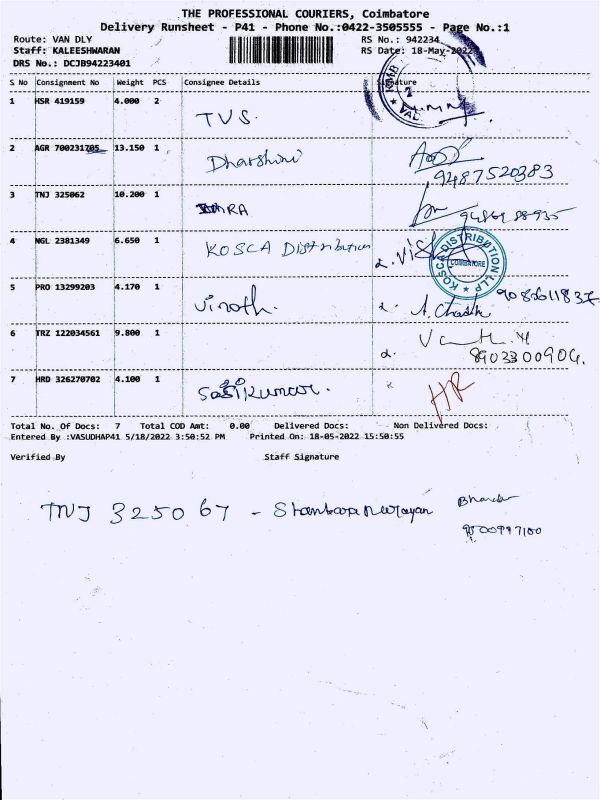 THE PROFESSIONAL COURIERS, Coimbatore
Delivery Runsheet - P41 - Phone No.:0422-3505555 - Page No.:1
Route: VAN DLY RS No.: 942234
Staff: KALEESHWARAN RS Date: 18-May-2022
DRS No.: DCJB94223401
S No Consignment No Weight PCS Consignee Details Signature
1 HSR 419159 4.000 2 TVS.
2 AGR 700231705 13.150 1 Dharshini
9487520383
3 TNJ 325062 10.200 1
4 NGL 2381349 6.650 1 KOSCA Distribution
KOSCA DISTRIBUTION LLP
COIMBATORE
5 PRO 13299203 4.170 1 Vinoth.
6 TRZ 122034561 9.800 1
8903300904.
7 HRD 326270702 4.100 1 Sasikumar. HR
Total No. Of Docs: 7 Total COD Amt: 0.00 Delivered Docs: Non Delivered Docs:
Entered By :VASUDHAP41 5/18/2022 3:50:52 PM Printed On: 18-05-2022 15:50:55
Verified By Staff Signature
TNJ 325067 -